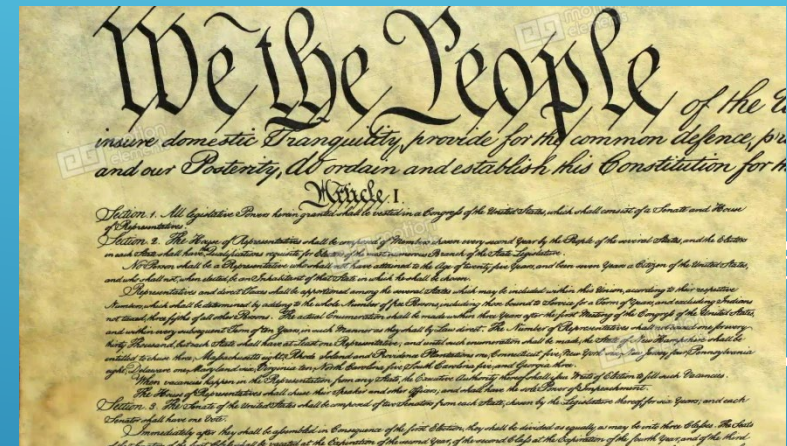 We the People of the
insure domestic Tranquility, provide for the common defence,
and our Posterity, do ordain and establish this Constitution for
Article I.
Section 1. All legislative Powers herein granted shall be vested in a Congress of the United States, which shall consist of a Senate and House
of Representatives.
Section 2. The House of Representatives shall be composed of Members chosen every second Year by the People of the several States, and the Electors
in each State shall have the Qualifications requisite for Electors of the most numerous Branch of the State Legislature.
No Person shall be a Representative who shall not have attained to the Age of twenty five Years, and been seven Years a Citizen of the United States,
and who shall not, when elected, be an Inhabitant of that State in which he shall be chosen.
Representatives and direct Taxes shall be apportioned among the several States which may be included within this Union, according to their respective
Numbers, which shall be determined by adding to the whole Number of free Persons, including those bound to Service for a Term of Years, and excluding Indians
not taxed, three fifths of all other Persons. The actual Enumeration shall be made within three Years after the first Meeting of the Congress of the United States,
and within every subsequent Term of ten Years, in such Manner as they shall by Law direct. The Number of Representatives shall not exceed one for every
thirty Thousand, but each State shall have at Least one Representative; and until such enumeration shall be made, the State of New Hampshire shall be
entitled to chuse three, Massachusetts eight, Rhode Island and Providence Plantations one, Connecticut five, New York six, New Jersey four, Pennsylvania
eight, Delaware one, Maryland six, Virginia ten, North Carolina five, South Carolina five, and Georgia three.
When vacancies happen in the Representation from any State, the Executive Authority thereof shall issue Writs of Election to fill such Vacancies.
The House of Representatives shall chuse their Speaker and other Officers; and shall have the sole Power of Impeachment.
Section. 3. The Senate of the United States shall be composed of two Senators from each State, chosen by the Legislature thereof, for six Years; and each
Senator shall have one Vote.
Immediately after they shall be assembled in Consequence of the first Election, they shall be divided as equally as may be into three Classes. The Seats
motion elements
motion elements